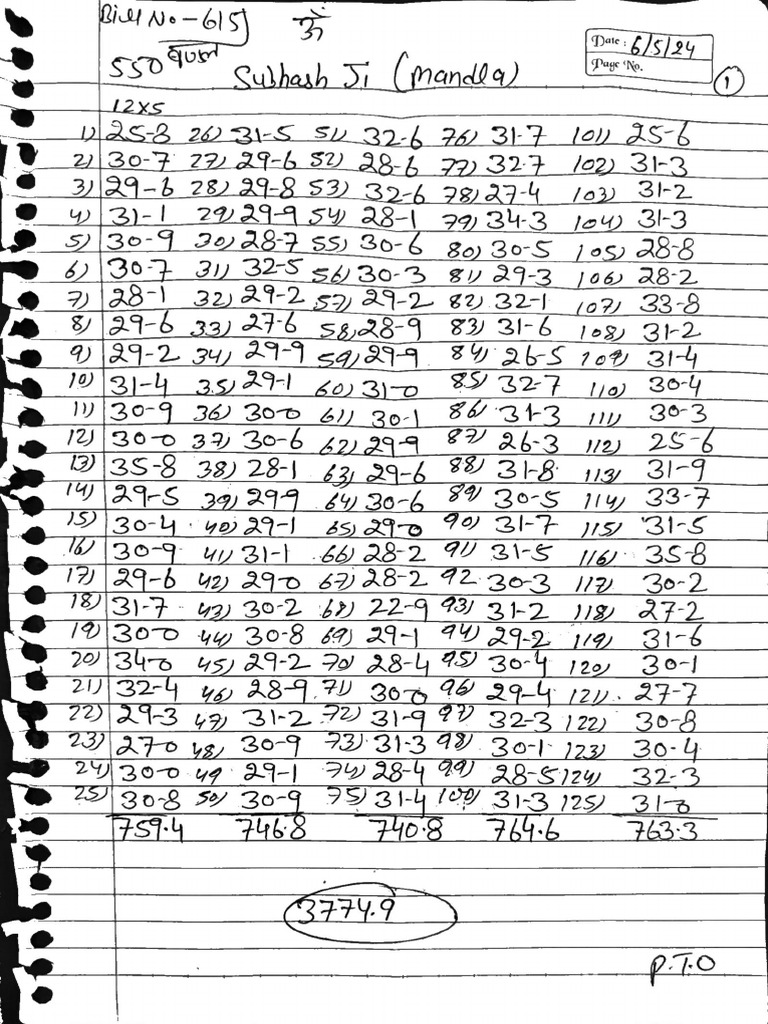 Bill No - 615 ॐ
550 बण्डल Subhash Ji (Mandla) Date : 6/5/24
Page No. 1
12x5
1) 25-8 26) 31-5 51) 32-6 76) 31-7 101) 25-6
2) 30-7 27) 29-6 52) 28-6 77) 32.7 102) 31-3
3) 29-6 28) 29-8 53) 32-6 78) 27-4 103) 31-2
4) 31-1 29) 29-9 54) 28-1 79) 34-3 104) 31-3
5) 30-9 30) 28-7 55) 30-6 80) 30-5 105) 28-8
6) 30-7 31) 32-5 56) 30-3 81) 29-3 106) 28-2
7) 28-1 32) 29-2 57) 29-2 82) 32-1 107) 33-8
8) 29-6 33) 27-6 58) 28-9 83) 31-6 108) 31-2
9) 29-2 34) 29-9 59) 29-9 84) 26-5 109) 31-4
10) 31-4 35) 29-1 60) 31-0 85) 32-7 110) 30-4
11) 30-9 36) 30-0 61) 30-1 86) 31-3 111) 30-3
12) 30-0 37) 30-6 62) 29-9 87) 26-3 112) 25-6
13) 35-8 38) 28-1 63) 29-6 88) 31-8 113) 31-9
14) 29-5 39) 29-9 64) 30-6 89) 30-5 114) 33-7
15) 30-4 40) 29-1 65) 29-0 90) 31-7 115) 31-5
16) 30-9 41) 31-1 66) 28-2 91) 31-5 116) 35-8
17) 29-6 42) 29-0 67) 28-2 92 30-3 117) 30-2
18) 31-7 43) 30-2 68) 22-9 93) 31-2 118) 27-2
19) 30-0 44) 30-8 69) 29-1 94) 29-2 119) 31-6
20) 34-0 45) 29-2 70) 28-4 95) 30-4 120) 30-1
21) 32-4 46) 28-9 71) 30-0 96) 29-4 121) 27-7
22) 29-3 47) 31-2 72) 31-9 97) 32-3 122) 30-8
23) 27-0 48) 30-9 73) 31-3 98) 30-1 123) 30-4
24) 30-0 49 29-1 74) 28-4 99) 28-5 124) 32-3
25) 30-8 50) 30-9 75) 31-4 100) 31-3 125) 31-0
759.4 746.8 740.8 764.6 763.3
3774.9
P.T.O